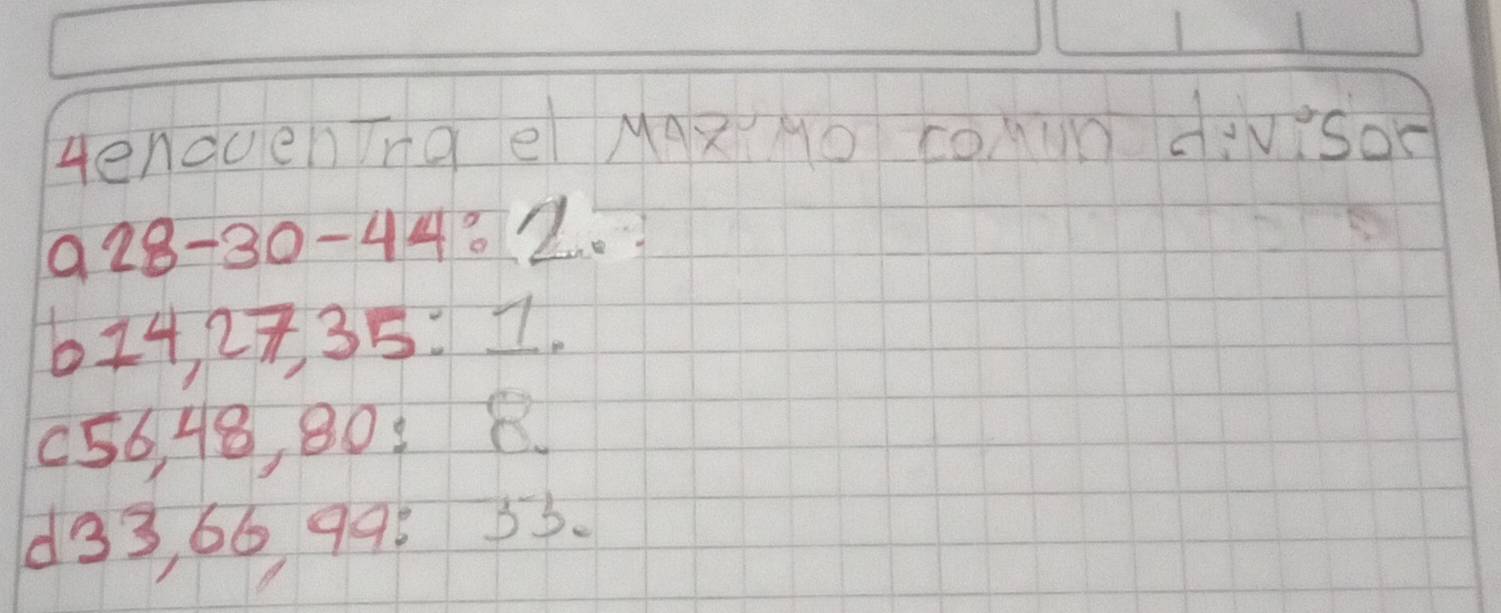 4encuentra el MAXiMO comun divisor
a 28-30-44: 2.
b 14, 27, 35: 1.
c 56, 48, 80: 8.
d 33, 66, 99: 33.